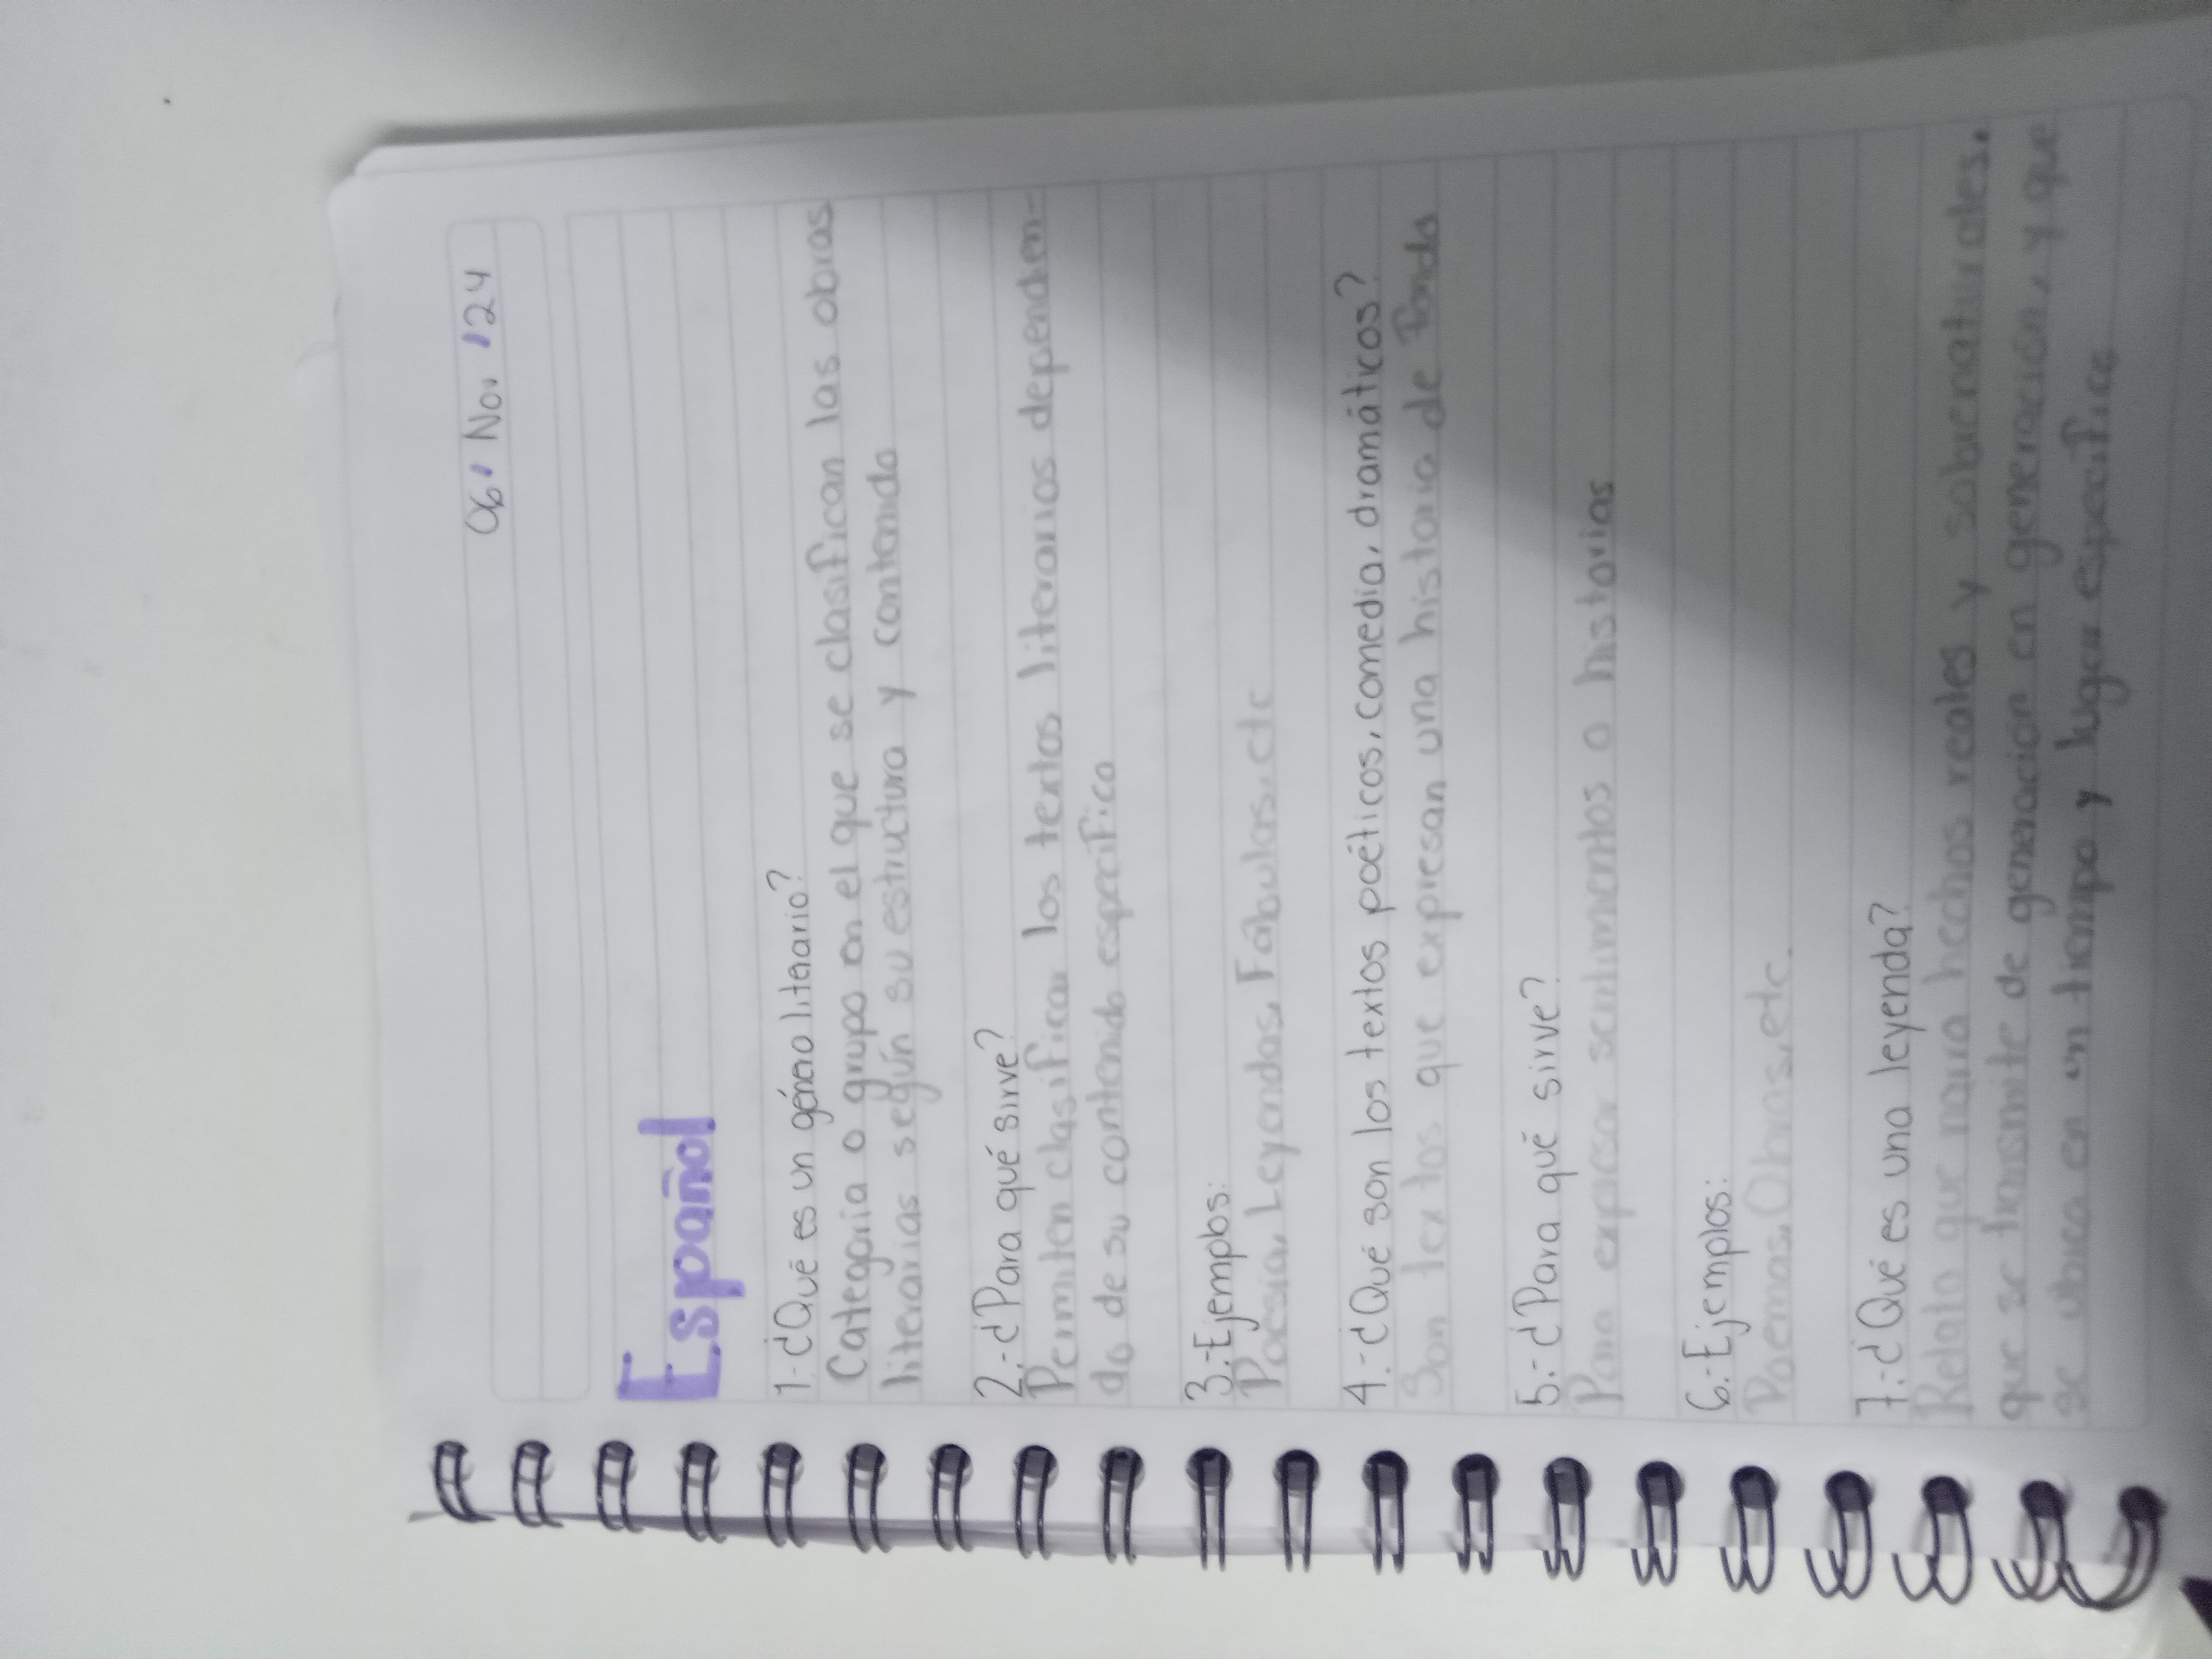 06 Nov 24
Español
1.-¿Qué es un género literario?
Categoria o grupo en el que se clasifican las obras
literarias según su estructura y contenido
2.-¿Para qué sirve?
Permiten clasificar los textos literarios dependien-
do de su contenido especifico
3.-Ejemplos:
Poesia, Leyendas, Fabulas, etc
4.-¿Qué son los textos poéticos, comedia, dramáticos?
Son textos que expresan una historia de
5.-¿Para qué sirve?
Para expresar sentimientos o historias
6.-Ejemplos:
Poemas, Obras, etc.
7.-¿Qué es una leyenda?
Relato que narra hechos reales y sobrenaturales,
que se transmite de generación en generación, y que
se ubica en un tiempo y lugar especifico